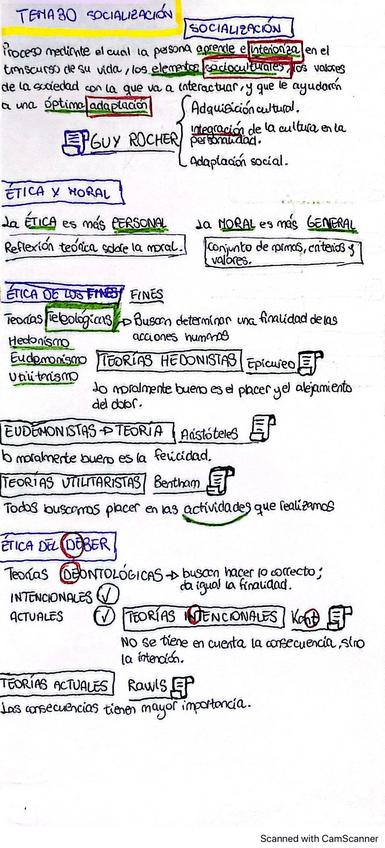 TEMA 30 SOCIALIZACIÓN
SOCIALIZACIÓN
Proceso mediante el cual la persona aprende e interioriza en el
transcurso de su vida, los elementos socioculturales, los valores
de la sociedad con la que va a interactuar, y que le ayudarán
a una óptima adaptación
GUY ROCHER
Adquisición cultural.
Integración de la cultura en la
personalidad.
Adaptación social.
ÉTICA Y MORAL
La ÉTICA es más PERSONAL
Reflexión teórica sobre la moral.
La MORAL es más GENERAL
Conjunto de normas, criterios y
valores.
ÉTICA DE LOS FINES FINES
Teorías Teleológicas → Buscan determinar una finalidad de las
acciones humanas
Hedonismo
Eudemonismo
Utilitrismo
TEORÍAS HEDONISTAS Epicureo
Lo moralmente bueno es el placer y el alejamiento
del dolor.
EUDEMONISTAS → TEORÍA Aristóteles
lo moralmente bueno es la felicidad.
TEORÍAS UTILITARISTAS Bentham
Todos buscamos placer en las actividades que realizamos
ÉTICA DEL DEBER
Teorías DEONTOLÓGICAS → buscan hacer lo correcto;
da igual la finalidad.
INTENCIONALES ✓
ACTUALES ✓
TEORÍAS INTENCIONALES Kant
No se tiene en cuenta la consecuencia, sino
la intención.
TEORÍAS ACTUALES Rawls
Las consecuencias tienen mayor importancia.
Scanned with CamScanner